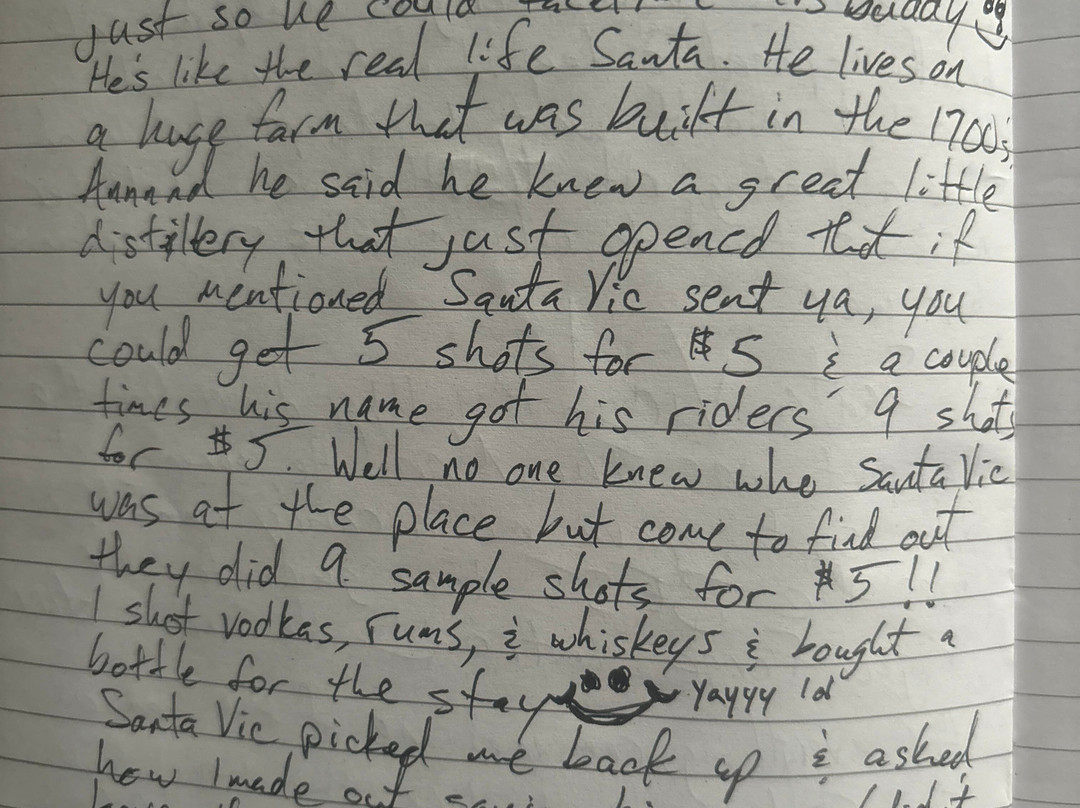 just so he could buddy
He's like the real life Santa. He lives on
a huge farm that was built in the 1700's
Annnnd he said he knew a great little
distillery that just opened that if
you mentioned Santa Vic sent ya, you
could get 5 shots for $5 & a couple
times his name got his riders 9 shots
for $5. Well no one knew who Santa Vic
was at the place but come to find out
they did 9 sample shots for $5!!
I shot vodkas, rums, & whiskeys & bought a
bottle for the stay Yayyy
Santa Vic picked me back up & asked
how I made out